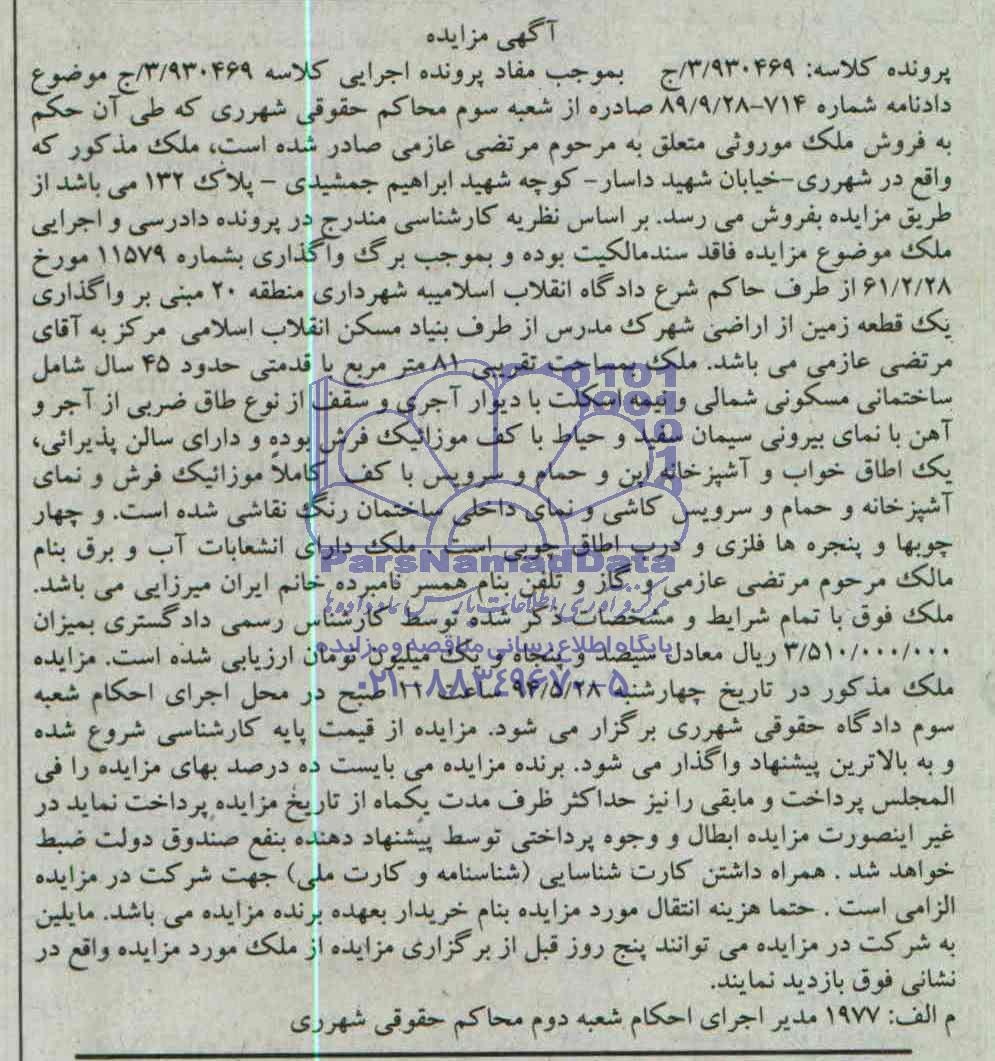 آگهی مزایده
پرونده کلاسه: ۳/۹۳۰۴۶۹/ج بموجب مفاد پرونده اجرایی کلاسه ۳/۹۳۰۴۶۹/ج موضوع
دادنامه شماره ۷۱۴-۸۹/۹/۲۸ صادره از شعبه سوم محاکم حقوقی شهرری که طی آن حکم
به فروش ملک موروثی متعلق به مرحوم مرتضی عازمی صادر شده است، ملک مذکور که
واقع در شهرری-خیابان شهید داسار- کوچه شهید ابراهیم جمشیدی - پلاک ۱۳۲ می باشد از
طریق مزایده بفروش می رسد. بر اساس نظریه کارشناسی مندرج در پرونده دادرسی و اجرایی
ملک موضوع مزایده فاقد سندمالکیت بوده و بموجب برگ واگذاری بشماره ۱۱۵۷۹ مورخ
۶۱/۲/۲۸ از طرف حاکم شرع دادگاه انقلاب اسلامیبه شهرداری منطقه ۲۰ مبنی بر واگذاری
یک قطعه زمین از اراضی شهرک مدرس از طرف بنیاد مسکن انقلاب اسلامی مرکز به آقای
مرتضی عازمی می باشد. ملک بمساحت تقریبی ۸۱ متر مربع با قدمتی حدود ۴۵ سال شامل
ساختمانی مسکونی شمالی و نیمه اسکلت با دیوار آجری و سقف از نوع طاق ضربی از آجر و
آهن با نمای بیرونی سیمان سفید و حیاط با کف موزائیک فرش بوده و دارای سالن پذیرائی،
یک اطاق خواب و آشپزخانه اپن و حمام و سرویس با کف کاملاً موزائیک فرش و نمای
آشپزخانه و حمام و سرویس کاشی و نمای داخلی ساختمان رنگ نقاشی شده است. و چهار
چوبها و پنجره ها فلزی و درب اطاق چوبی است. ملک دارای انشعابات آب و برق بنام
مالک مرحوم مرتضی عازمی و گاز و تلفن بنام همسر نامبرده خانم ایران میرزایی می باشد.
ملک فوق با تمام شرایط و مشخصات ذکر شده توسط کارشناس رسمی دادگستری بمیزان
۳/۵۱۰/۰۰۰/۰۰۰ ریال معادل سیصد و پنجاه و یک میلیون تومان ارزیابی شده است. مزایده
ملک مذکور در تاریخ چهارشنبه ۹۴/۵/۲۸ ساعت صبح در محل اجرای احکام شعبه
سوم دادگاه حقوقی شهرری برگزار می شود. مزایده از قیمت پایه کارشناسی شروع شده
و به بالاترین پیشنهاد واگذار می شود. برنده مزایده می بایست ده درصد بهای مزایده را فی
المجلس پرداخت و مابقی را نیز حداکثر ظرف مدت یکماه از تاریخ مزایده پرداخت نماید در
غیر اینصورت مزایده ابطال و وجوه پرداختی توسط پیشنهاد دهنده بنفع صندوق دولت ضبط
خواهد شد . همراه داشتن کارت شناسایی (شناسنامه و کارت ملی) جهت شرکت در مزایده
الزامی است . حتما هزینه انتقال مورد مزایده بنام خریدار بعهده برنده مزایده می باشد. مایلین
به شرکت در مزایده می توانند پنج روز قبل از برگزاری مزایده از ملک مورد مزایده واقع در
نشانی فوق بازدید نمایند.
م الف: ۱۹۷۷ مدیر اجرای احکام شعبه دوم محاکم حقوقی شهرری
ParsNamadData
پایگاه اطلاع رسانی مناقصه و مزایده
۰۲۱-۸۸۳۴۹۶۷۰-۵